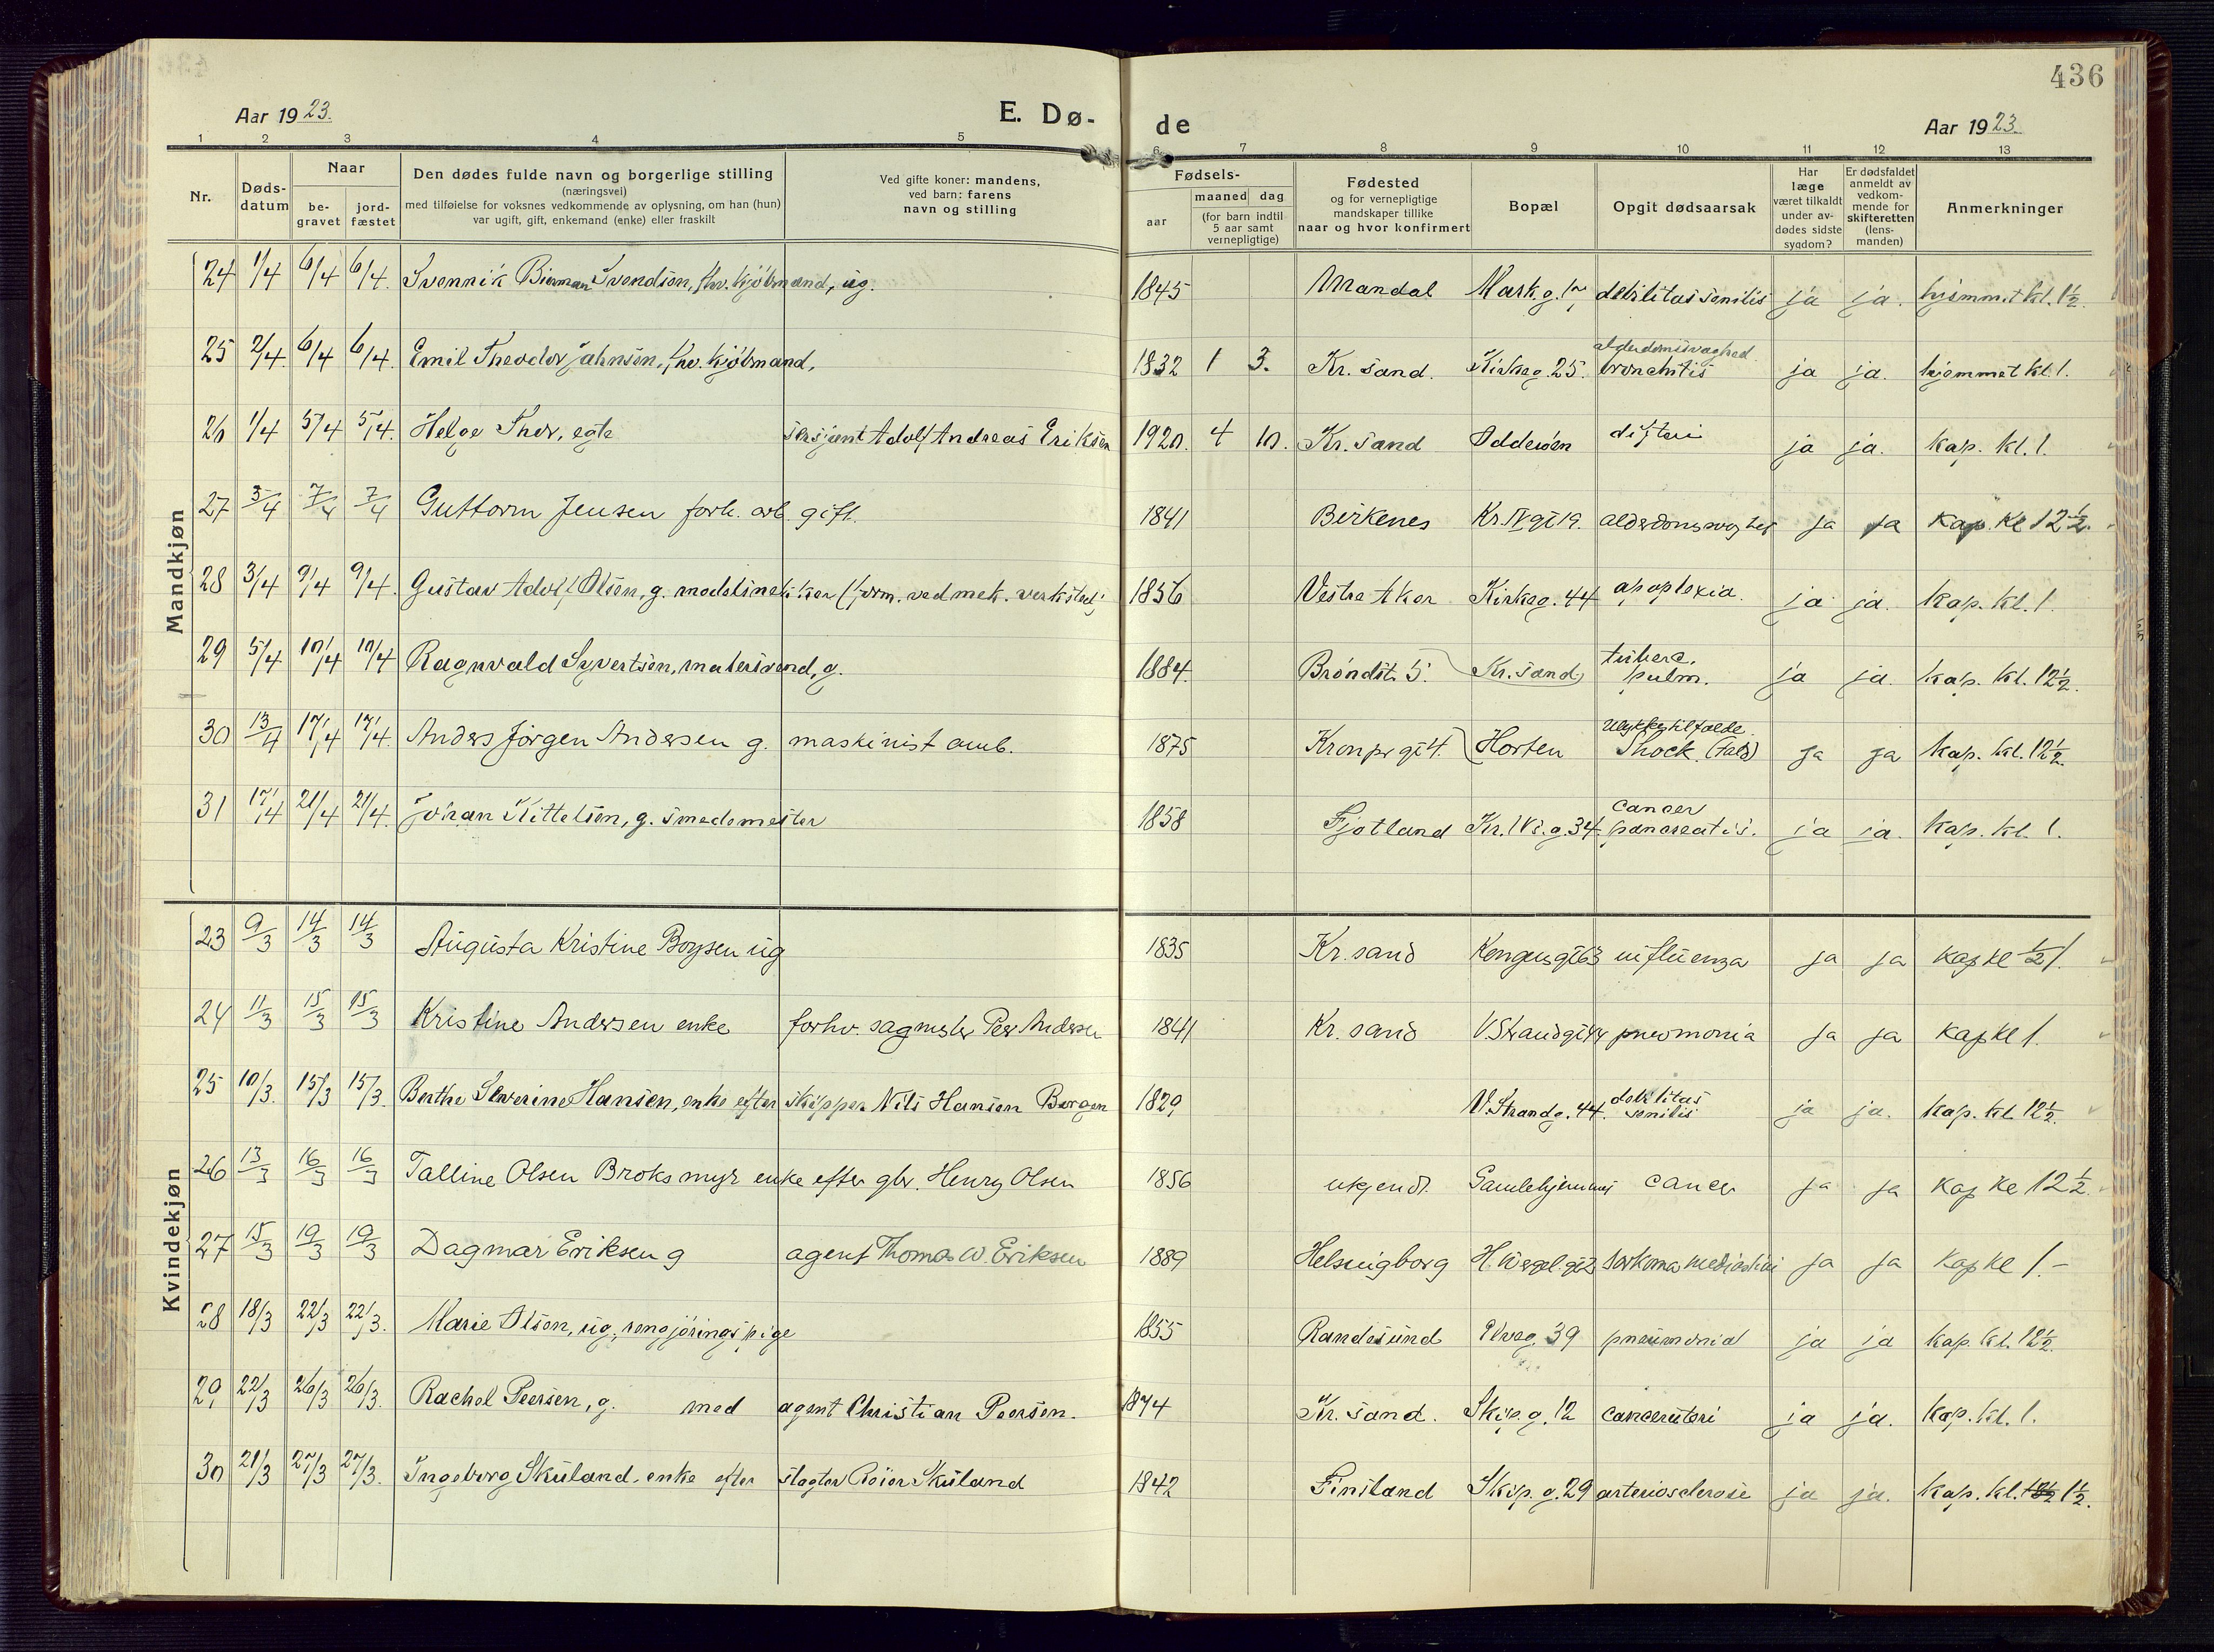 436
Aar 1923. E. Dø- de Aar 1923.
1 2 3 4 5 6 7 8 9 10 11 12 13
Nr. Døds-datum Naar be-gravet jord-fæstet Den dødes fulde navn og borgerlige stilling (næringsvei) med tilføielse for voksnes vedkommende av oplysning, om han (hun) var ugift, gift, enkemand (enke) eller fraskilt Ved gifte koner: mandens, ved barn: farens navn og stilling Fødsels- aar maaned dag (for barn indtil 5 aar samt vernepligtige) Fødested og for vernepligtige mandskaper tillike naar og hvor konfirmert Bopæl Opgit dødsaarsak Har læge været tilkaldt under av-dødes sidste sygdom? Er dødsfaldet anmeldt av vedkom-mende for skifteretten (lens-manden) Anmerkninger
Mandkjøn
24 1/4 6/4 6/4. Svennik Bierman Svendsen, fhv. kjøbmand, ug. 1845 Mandal Mark.g. debilitas senilis ja ja. hjemmet kl. 1½.
25 2/4. 6/4 6/4. Emil Theodor Jahnsen, fhv. kjøbmand, 1832 1 3. Kr.sand. Kirkeg. 25. alderdomssvaghed bronchitis ja ja. hjemmet kl. 1.
26 1/4 5/4 5/4. Helge Thor, egte sersjant Adolf Andreas Eriksen 1920. 4 10. Kr.sand Odderøen difteri ja ja. kap. kl. 1.
27 5/4 7/4 7/4 Guttorm Jensen forh. arb. gift. 1841 Birkenes Kr. IV gt 19. ja ja kap. Kl 12½.
28 3/4 9/4 9/4. Gustav Adolf Olsen, g. modelsnekker (form. ved mek. verksted) 1856 Vestre Aker Kirkeg. 44 apoplexia. ja ja. kap. kl. 1.
29 5/4 10/4 10/4 Ragnvald Syvertsen, malersvend, g. 1884. Brøndst. 5. Kr.sand. tuberc. pulm. ja ja. kap. kl. 12½.
30 13/4 17/4 17/4. Anders Jørgen Andersen g. maskinist amb. 1875 Kronprgt 4. Horten Ulykkestilfælde. Shock. (Fald) ja ja kap. kl. 12½.
31 17/4 21/4 21/4. Johan Kittelsen, g. smedemester 1858 Fjotland Kr. IVs.g. 34. cancer pancreatis. ja ja. kap. kl. 1.
Kvindekjøn
23 9/3 14/3 14/3 Augusta Kristine Boysen ug 1835 Kr.sand Kongensgt 63 influenza ja ja kap kl ½1.
24 11/3 15/3 15/3 Kristine Andersen enke forhv. sagmester Peer Andersen 1841 Kr.sand V. Strandgt 44 pneumonia ja ja kap kl 1.
25 10/3. 15/3 15/3. Berthe Severine Hansen, enke efter skipper Nils Hansen Bergen 1829 V. Strandg. 44. debilitas senilis ja ja. kap. kl. 12½.
26 13/3 16/3 16/3 Talline Olsen Broksmyr enke efter gbr. Henry Olsen 1856 ukjendt. Gamlehjemmet cancer ja ja kap kl 12½.
27 15/3 19/3 19/3 Dagmar Eriksen g agent Thomas W. Eriksen 1889 Helsingborg H. Wergel. gt 2 sarkoma mediastini ja ja kap kl 1.-
28 18/3 22/3 22/3. Marie Olsen, ug., rengjøringspige 1855 Randesund Elveg. 39 pneumonia ja ja kap. kl. 12½.
29 22/3 26/3 26/3. Rachel Peersen, g. med agent Christian Peersen. 1874 Kr.sand. Skip.g. 12 cancer uteri ja ja. kap. kl. 1.
30 21/3 27/3 27/3. Ingeborg Skuland, enke efter slagter Reier Skuland 1842 Finsland Skip.g. 29 arteriosclerose ja ja. kap. kl. 12½ 1½.